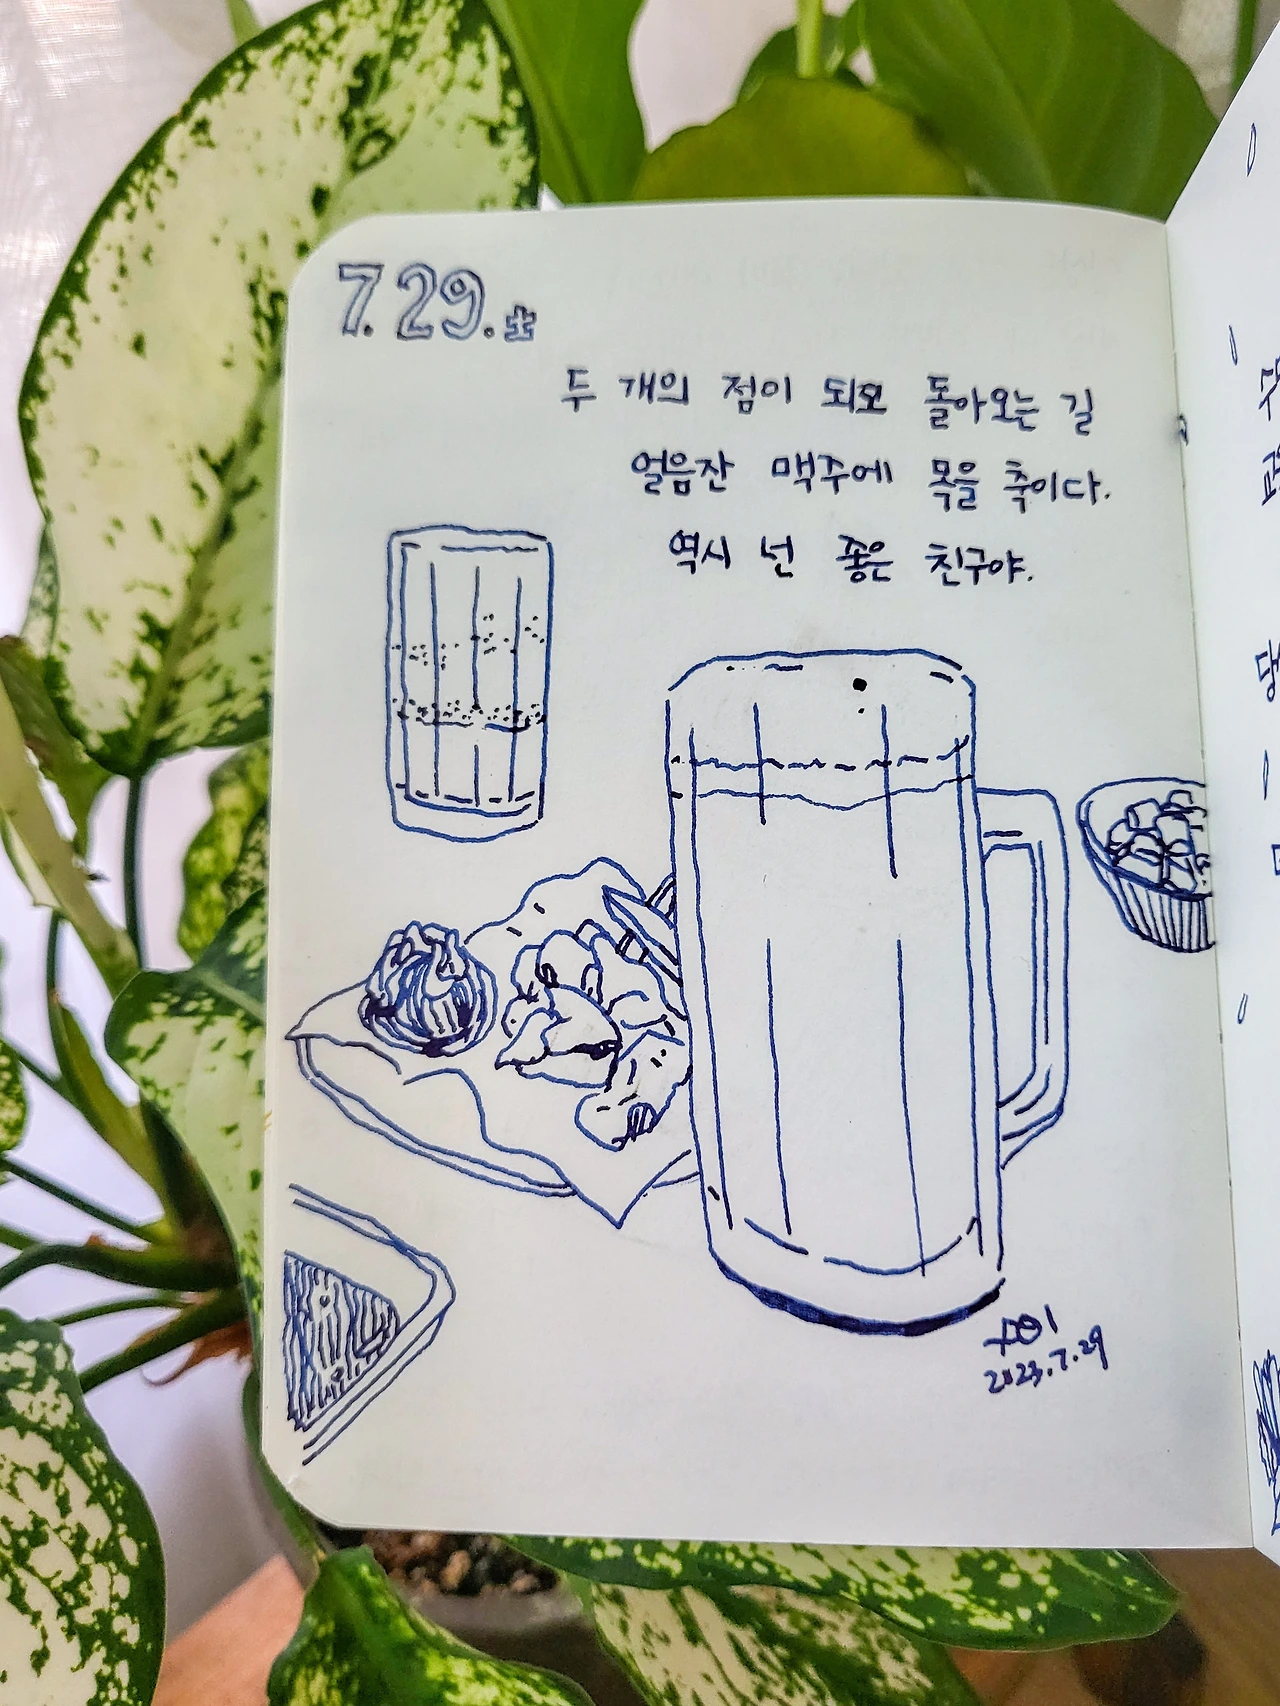 7. 29. 土
두 개의 점이 되오 돌아오는 길
얼음잔 맥주에 목을 축이다.
역시 넌 좋은 친구야.
2023.7.29